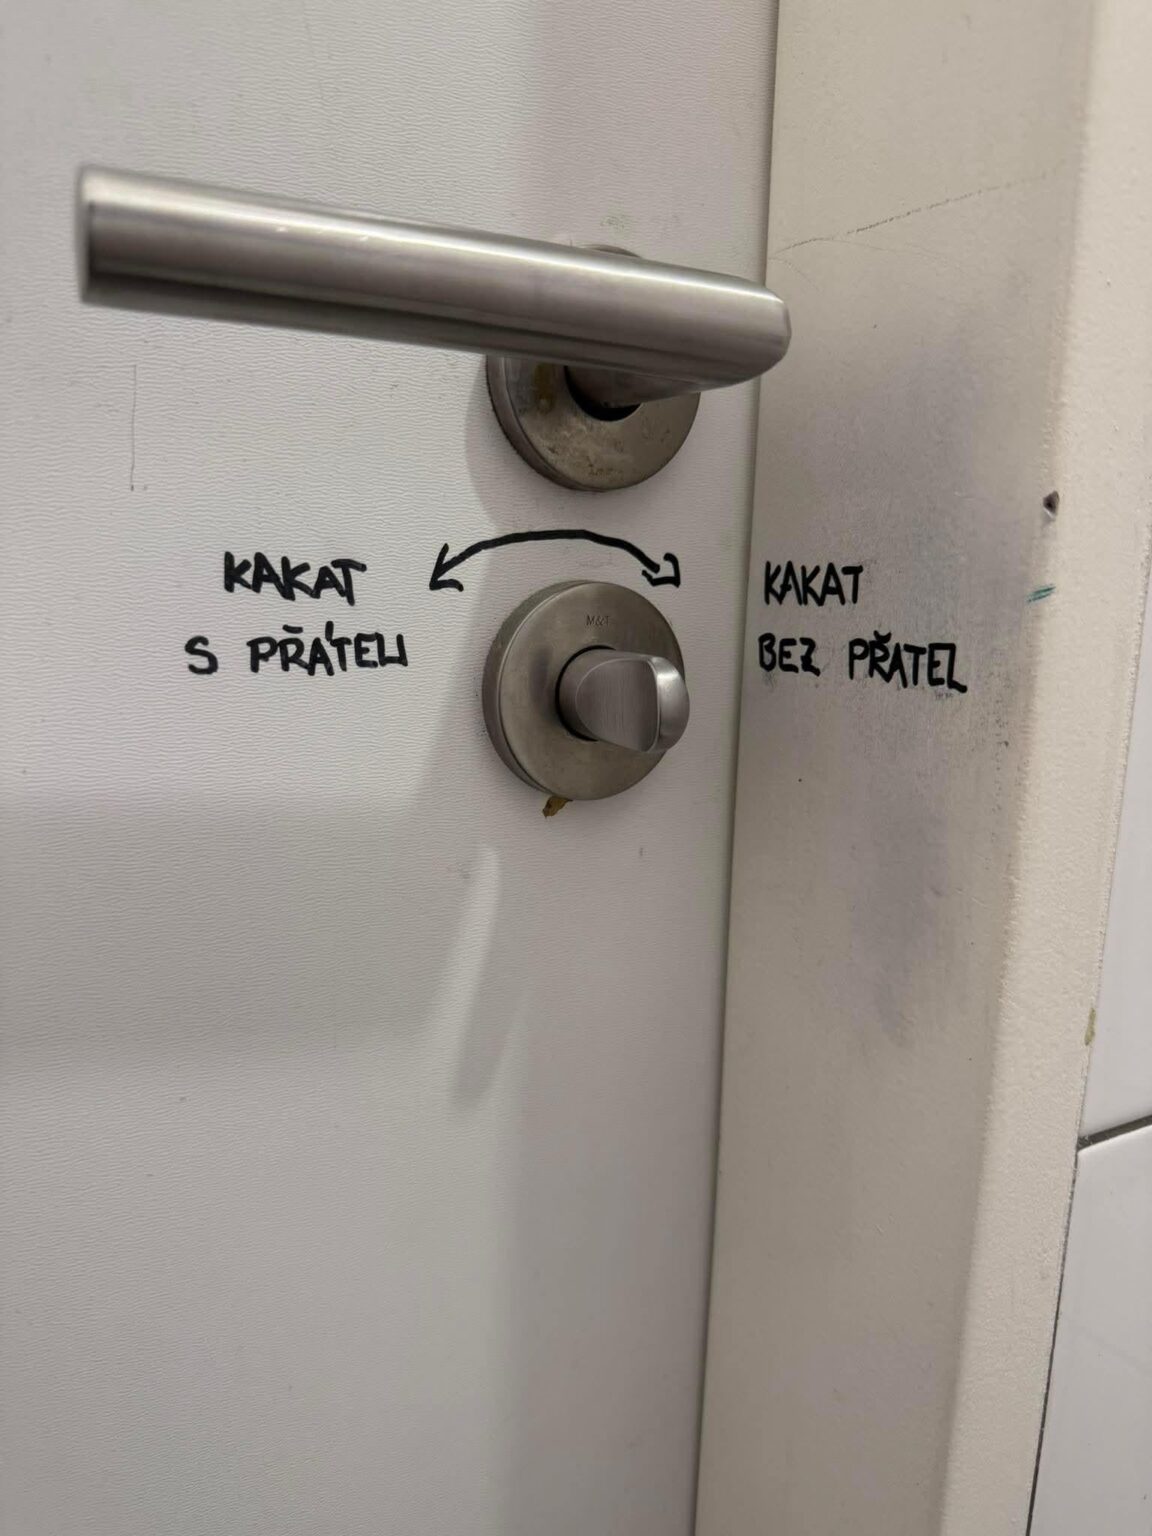 M&T
KAKAT
S PŘÁTELI
KAKAT
BEZ PŘATEL